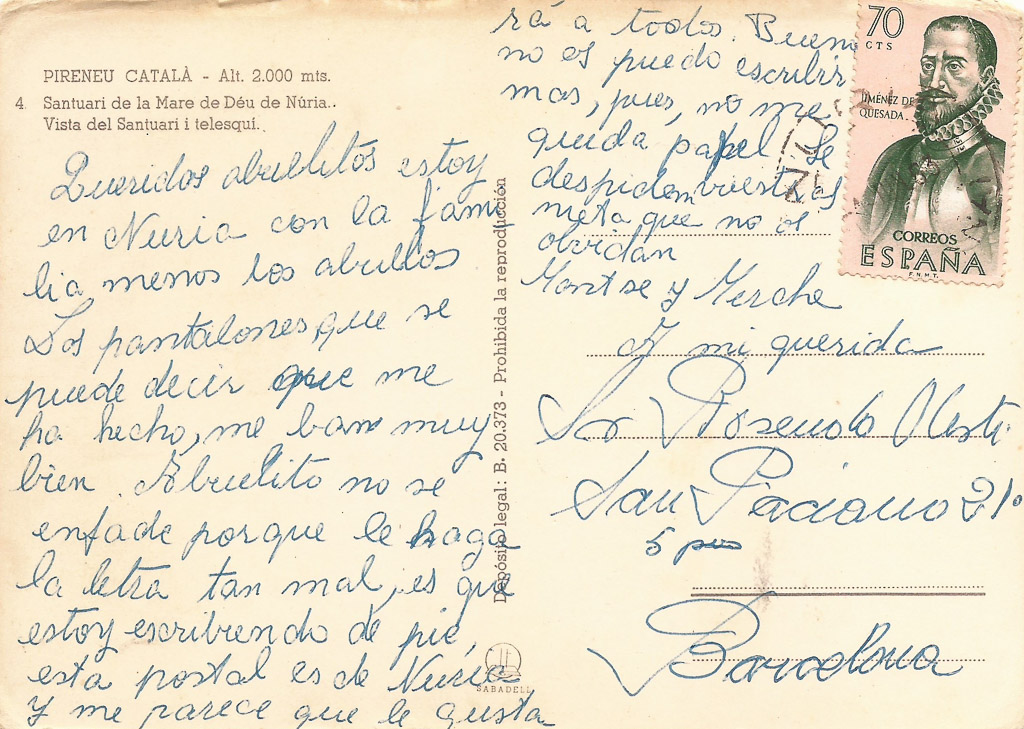 PIRENEU CATALÀ - Alt. 2.000 mts.
4. Santuari de la Mare de Déu de Núria..
Vista del Santuari i telesquí.
Queridos abuelitos estoy
en Nuria con la fami
lia menos los abuelos
Los pantalones, que se
puede decir que me
ha hecho, me ban muy
bien. Abuelito no se
enfade porque le haga
la letra tan mal, es que
estoy escribiendo de pié,
esta postal es de Nuria
Y me parece que le gusta
rá a todos. Bueno
no os puedo escribir
mas, pues, no me
queda papel Se
despiden vuestras
nieta que no os
olvidan
Montse y Merche
Y mi querida
Sr Rosendo
San Paciano 21º
5 piso
Barcelona
Depósito legal: B. 20.373 - Prohibida la reproducción
SABADELL
70
CTS
JIMÉNEZ DE
QUESADA
CORREOS
ESPAÑA
F.N.M.T.